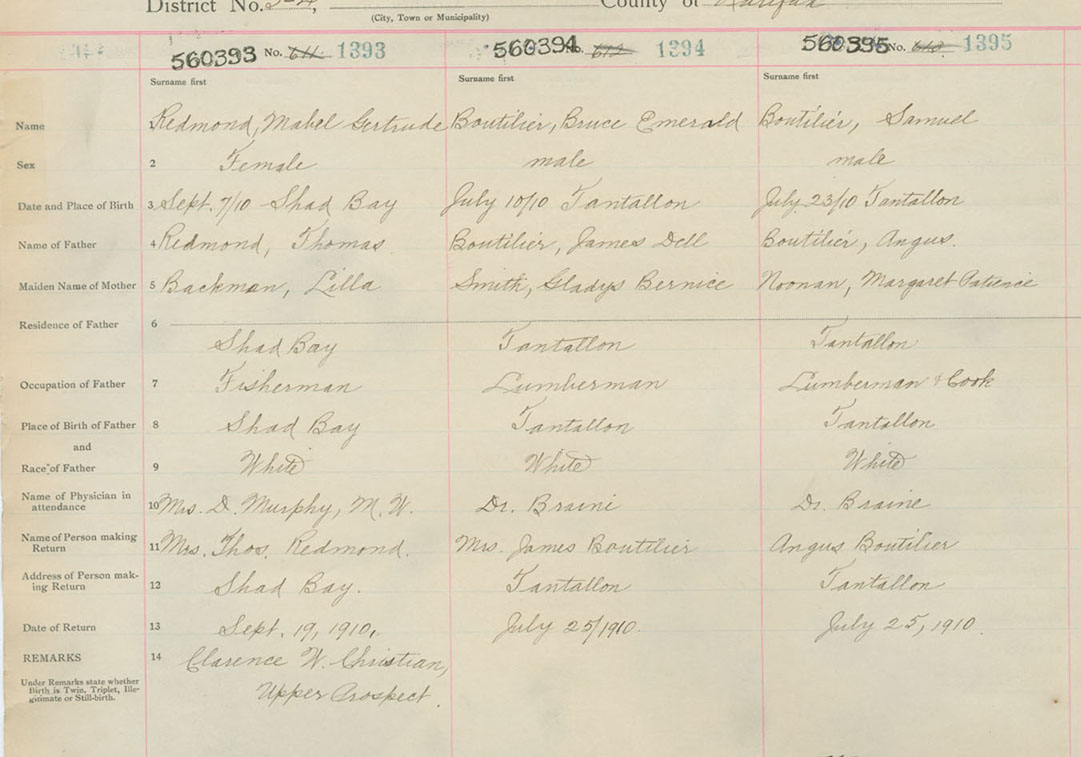 District No. County of Halifax
(City, Town or Municipality)
560393 No. 1393 560394 No. 1394 560395 No. 1395
Surname first Surname first Surname first
Name 1 Redmond, Mabel Gertrude Boutilier, Bruce Emerald Boutilier, Samuel
Sex 2 Female male male
Date and Place of Birth 3 Sept. 7/10 Shad Bay July 10/10 Tantallon July 23/10 Tantallon
Name of Father 4 Redmond, Thomas Boutilier, James Dell Boutilier, Angus.
Maiden Name of Mother 5 Backman, Lilla Smith, Gladys Bernice Noonan, Margaret Patience
Residence of Father 6
Shad Bay Tantallon Tantallon
Occupation of Father 7 Fisherman Lumberman Lumberman & Cook
Place of Birth of Father 8 Shad Bay Tantallon Tantallon
and
Race of Father 9 White White White
Name of Physician in
attendance 10 Mrs. D. Murphy, M. W. Dr. Braine Dr. Braine
Name of Person making
Return 11 Mrs. Thos. Redmond. Mrs. James Boutilier Angus Boutilier
Address of Person mak-
ing Return 12 Shad Bay. Tantallon Tantallon
Date of Return 13 Sept. 19, 1910. July 25/1910. July 25, 1910.
REMARKS 14 Clarence W. Christian,
Under Remarks state whether
Birth is Twin, Triplet, Ille- Upper Prospect.
gitimate or Still-birth.